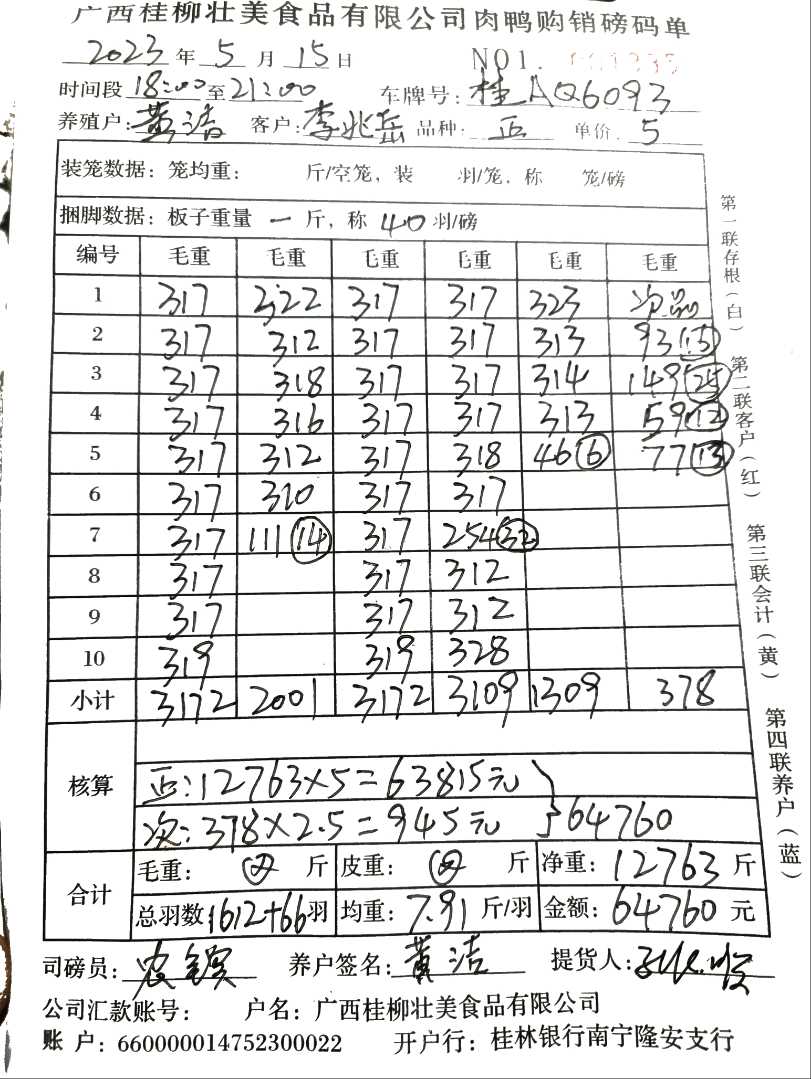 广西桂柳壮美食品有限公司肉鸭购销磅码单
2023 年 5 月 15 日 NO1.
时间段 18:00 至 21:00 车牌号: 桂AQ6093
养殖户: 黄洁 客户: 李兆岳 品种: 正 单价: 5
装笼数据: 笼均重: 斤/空笼, 装 羽/笼, 称 笼/磅
捆脚数据: 板子重量 一 斤, 称 40 羽/磅
编号 毛重 毛重 毛重 毛重 毛重 毛重
1 317 322 317 317 323 次品
2 317 312 317 317 313 93 (15)
3 317 318 317 317 314 149 (25)
4 317 316 317 317 313 59 (12)
5 317 312 317 318 46 (6) 77 (13)
6 317 310 317 317
7 317 111 (14) 317 254 (32)
8 317 317 312
9 317 317 312
10 319 319 328
小计 3172 2001 3172 3109 1309 378
核算 正:12763×5=63815元
次:378×2.5=945元 }64760
合计 毛重: 斤 皮重: 斤 净重: 12763 斤
总羽数 1612+66 羽 均重: 7.91 斤/羽 金额: 64760 元
司磅员: 养户签名: 黄洁 提货人:
公司汇款账号: 户名: 广西桂柳壮美食品有限公司
账 户: 660000014752300022 开户行: 桂林银行南宁隆安支行
第一联存根(白)
第二联客户(红)
第三联会计(黄)
第四联养户(蓝)